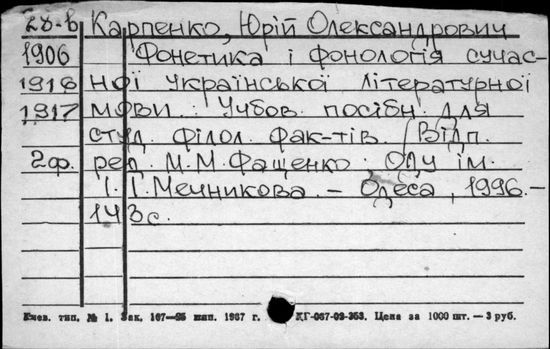 28-в Карпенко, Юрій Олександрович
1906 Фонетика і фонологія сучас-
1918 ної української літературної
1917 мови. Учбов. посібн. для
студ. філол. фак-тів. / Відп.
2ф. ред. М.М. Фащенко. ОДУ ім.
І.І. Мечникова. – Одеса, 1996. –
143с.
Киев. тип. № 1. Зак. 167—95 1967 г. КГ-067-09-353. Цена за 1000 шт. — 3 руб.